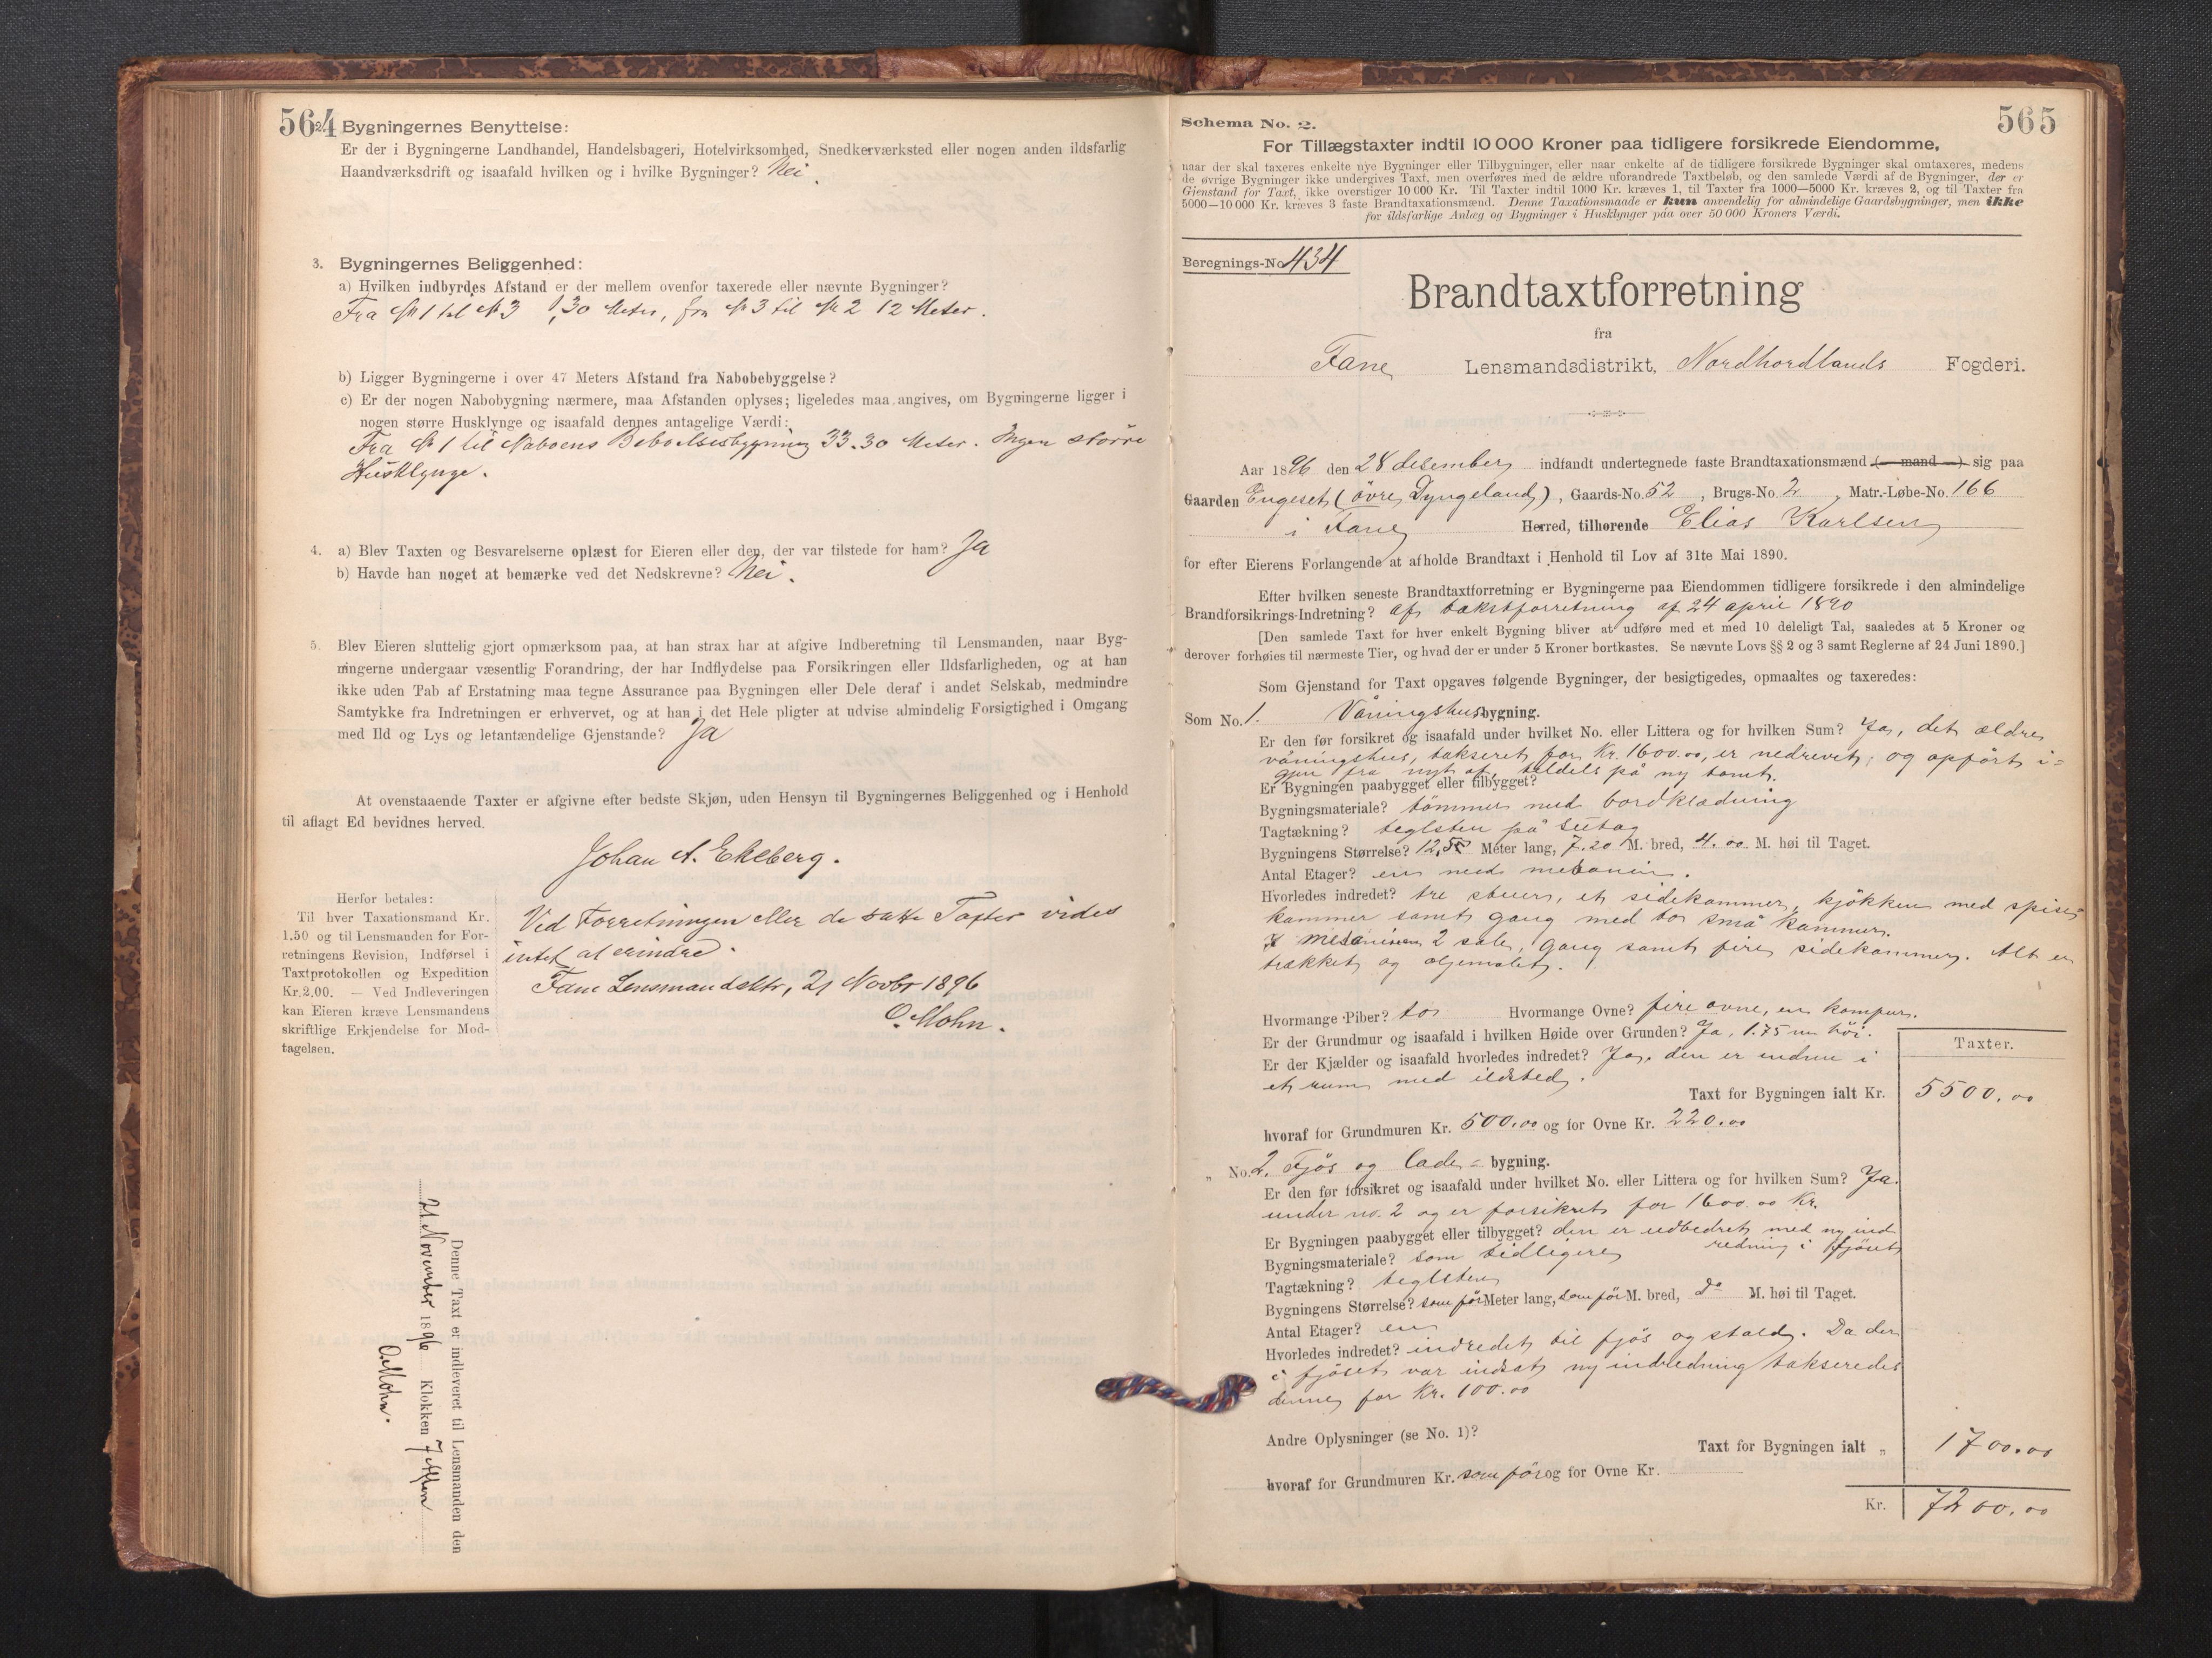 564
2. Bygningernes Benyttelse:
Er der i Bygningerne Landhandel, Handelsbageri, Hotelvirksomhed, Snedkerværksted eller nogen anden ildsfarlig
Haandværksdrift og isaafald hvilken og i hvilke Bygninger? Nei.
3. Bygningernes Beliggenhed:
a) Hvilken indbyrdes Afstand er der mellem ovenfor taxerede eller nævnte Bygninger?
Fra № 1 til № 3 1,30 Meter, fra № 3 til № 2 12 Meter.
b) Ligger Bygningerne i over 47 Meters Afstand fra Nabobebyggelse?
c) Er der nogen Nabobygning nærmere, maa Afstanden oplyses; ligeledes maa angives, om Bygningerne ligger i
nogen større Husklynge og isaafald dennes antagelige Værdi:
Fra № 1 til Naboens Beboelsesbygning 33.30 Meter. Ingen större
Husklynge.
4. a) Blev Taxten og Besvarelserne oplæst for Eieren eller den, der var tilstede for ham? Ja
b) Havde han noget at bemærke ved det Nedskrevne? Nei.
5. Blev Eieren sluttelig gjort opmærksom paa, at han strax har at afgive Indberetning til Lensmanden, naar Byg-
ningerne undergaar væsentlig Forandring, der har Indflydelse paa Forsikringen eller Ildsfarligheden, og at han
ikke uden Tab af Erstatning maa tegne Assurance paa Bygningen eller Dele deraf i andet Selskab, medmindre
Samtykke fra Indretningen er erhvervet, og at han i det Hele pligter at udvise almindelig Forsigtighed i Omgang
med Ild og Lys og letantændelige Gjenstande? Ja
At ovenstaaende Taxter er afgivne efter bedste Skjøn, uden Hensyn til Bygningernes Beliggenhed og i Henhold
til aflagt Ed bevidnes herved.
Johan A. Ekeberg.
Herfor betales:
Til hver Taxationsmand Kr.
1.50 og til Lensmanden for For-
retningens Revision, Indførsel i
Taxtprotokollen og Expedition
Kr. 2.00. — Ved Indleveringen
kan Eieren kræve Lensmandens
skriftlige Erkjendelse for Mod-
tagelsen.
Ved Forretningen eller de satte Taxter vides
intet at erindre.
Fane Lensmandsktr, 21 Novbr 1896
O. Mohn.
Denne Taxt er indleveret til Lensmanden den
21 November 1896 Klokken 7 Aften
O. Mohn.
565
Schema No. 2.
For Tillægstaxter indtil 10 000 Kroner paa tidligere forsikrede Eiendomme,
naar der skal taxeres enkelte nye Bygninger eller Tilbygninger, eller naar enkelte af de tidligere forsikrede Bygninger skal omtaxeres, medens
de øvrige Bygninger ikke undergives Taxt, men overføres med de ældre uforandrede Taxtbeløb, og den samlede Værdi af de Bygninger, der er
Gjenstand for Taxt, ikke overstiger 10 000 Kr. Til Taxter indtil 1000 Kr. kræves 1, til Taxter fra 1000—5000 Kr. kræves 2, og til Taxter fra
5000—10 000 Kr. kræves 3 faste Brandtaxationsmænd. Denne Taxationsmaade er kun anvendelig for almindelige Gaardsbygninger, men ikke
for ildsfarlige Anlæg og Bygninger i Husklynger paa over 50 000 Kroners Værdi.
Beregnings-No 434
Brandtaxtforretning
fra
Fane Lensmandsdistrikt, Nordhordlands Fogderi.
Aar 1896 den 28 desember indfandt undertegnede faste Brandtaxationsmænd (— mand —) sig paa
Gaarden Engeset (övre Dyngeland), Gaards-No. 52, Brugs-No. 2, Matr.-Løbe-No. 166
i Fane Herred, tilhørende Elias Karlsen
for efter Eierens Forlangende at afholde Brandtaxt i Henhold til Lov af 31te Mai 1890.
Efter hvilken seneste Brandtaxtforretning er Bygningerne paa Eiendommen tidligere forsikrede i den almindelige
Brandforsikrings-Indretning? af takstforretning af 24 april 1890
[Den samlede Taxt for hver enkelt Bygning bliver at udføre med et med 10 deleligt Tal, saaledes at 5 Kroner og
derover forhøies til nærmeste Tier, og hvad der er under 5 Kroner bortkastes. Se nævnte Lovs §§ 2 og 3 samt Reglerne af 24 Juni 1890.]
Som Gjenstand for Taxt opgaves følgende Bygninger, der besigtigedes, opmaaltes og taxeredes:
Som No. 1. Våningshusbygning.
Er den før forsikret og isaafald under hvilket No. eller Littera og for hvilken Sum? Ja, det ældre
våningshus, takseret for Kr. 1600.00, er nedrevet, og opført i=
gjen fra nyt af, tildels på ny tomt.
Er Bygningen paabygget eller tilbygget?
Bygningsmateriale? tömmer med bordklædning
Tagtækning? teglsten på sutag
Bygningens Størrelse? 12,50 Meter lang, 7.20 M. bred, 4.00 M. høi til Taget.
Antal Etager? en med mesanin.
Hvorledes indredet? tre stuer, et sidekammer, kjökken med spise
kammer samt gang med to små kammer.
I mesaninen 2 sale, gang samt fire sidekammer. Alt er
trækket og oljemalet.
Hvormange Piber? to Hvormange Ovne? fire ovne, en komfur.
Er der Grundmur og isaafald i hvilken Høide over Grunden? Ja, 1.75 m höi.
Er der Kjælder og isaafald hvorledes indredet? Ja, den er indre i
et rum med ildsted.
Taxter.
Taxt for Bygningen ialt Kr. 5500.00
hvoraf for Grundmuren Kr. 500.00 og for Ovne Kr. 220.00
„ No. 2. Fjös og lade=bygning.
Er den før forsikret og isaafald under hvilket No. eller Littera og for hvilken Sum? Ja.
under no. 2 og er forsikret for 1600.00 Kr.
Er Bygningen paabygget eller tilbygget? den er udbedret med ny ind
redning i fjöset
Bygningsmateriale? som tidligere
Tagtækning? teglsten
Bygningens Størrelse? som för Meter lang, som för M. bred, do M. høi til Taget.
Antal Etager? en
Hvorledes indredet? indredet til fjös og stald. Da der
i fjöset var indsat ny indredning takseredes
denne for Kr. 100.00
Andre Oplysninger (se No. 1)?
Taxt for Bygningen ialt „ 1700.00
hvoraf for Grundmuren Kr. som för og for Ovne Kr.
Kr. 7200.00